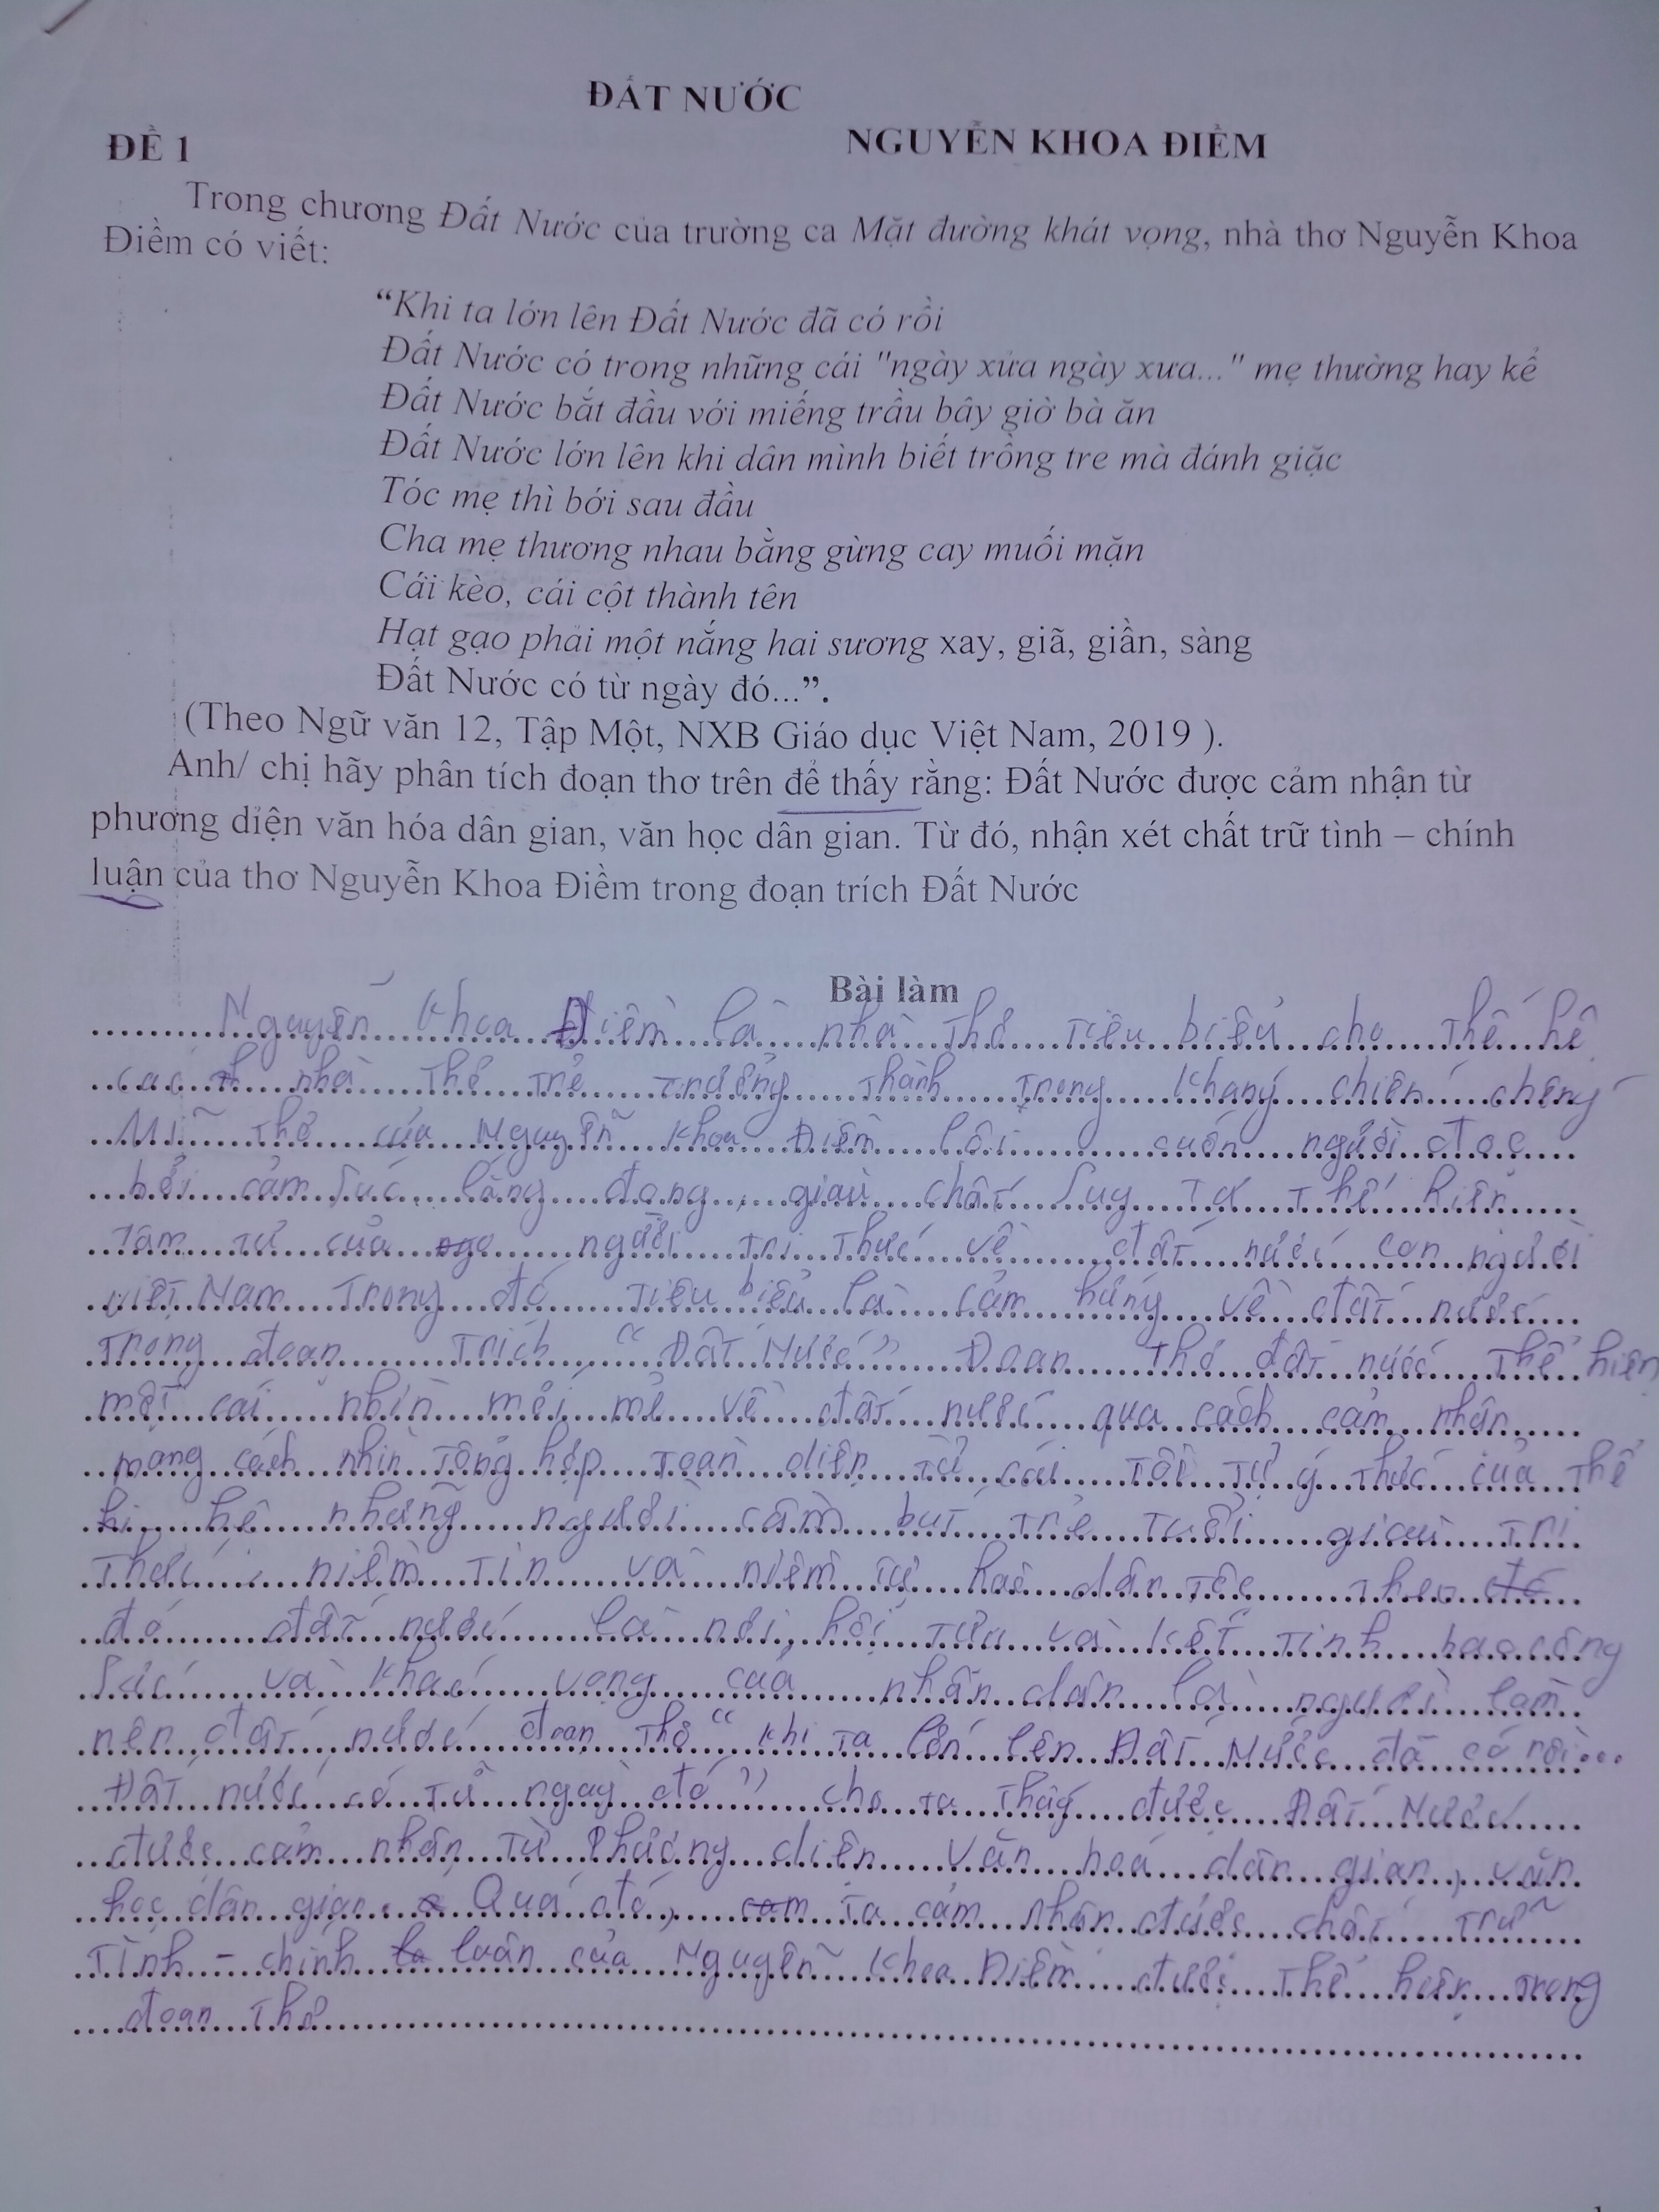 ĐẤT NƯỚC
NGUYỄN KHOA ĐIỀM
ĐỀ 1
Trong chương Đất Nước của trường ca Mặt đường khát vọng, nhà thơ Nguyễn Khoa
Điềm có viết:
“Khi ta lớn lên Đất Nước đã có rồi
Đất Nước có trong những cái "ngày xửa ngày xưa..." mẹ thường hay kể
Đất Nước bắt đầu với miếng trầu bây giờ bà ăn
Đất Nước lớn lên khi dân mình biết trồng tre mà đánh giặc
Tóc mẹ thì bới sau đầu
Cha mẹ thương nhau bằng gừng cay muối mặn
Cái kèo, cái cột thành tên
Hạt gạo phải một nắng hai sương xay, giã, giần, sàng
Đất Nước có từ ngày đó...”.
(Theo Ngữ văn 12, Tập Một, NXB Giáo dục Việt Nam, 2019 ).
Anh/ chị hãy phân tích đoạn thơ trên để thấy rằng: Đất Nước được cảm nhận từ
phương diện văn hóa dân gian, văn học dân gian. Từ đó, nhận xét chất trữ tình – chính
luận của thơ Nguyễn Khoa Điềm trong đoạn trích Đất Nước
Bài làm
Nguyễn Khoa Điềm là nhà thơ tiêu biểu cho thế hệ
các nhà thơ trẻ trưởng thành trong kháng chiến chống
Mĩ Thơ của Nguyễn Khoa Điềm lôi cuốn người đọc
bởi cảm xúc lắng đọng, giàu chất suy tư thể hiện
tâm tư của người tri thức về đất nước con người
việt Nam Trong đó tiêu biểu là cảm hứng về đất nước
trong đoạn trích “Đất Nước” Đoạn thơ đất nước thể hiện
một cái nhìn mới mẻ về đất nước qua cách cảm nhận
mang cách nhìn tổng hợp toàn diện từ cái tôi tự ý thức của thế
hệ những người cầm bút trẻ tuổi giàu tri
thức, niềm tin và niềm tự hào dân tộc theo
đó đất nước là nơi hội tựu và kết tinh bao công
sức và khác vọng của nhân dân là người làm
nên đất nước đoạn thơ “khi ta lớn lên Đất Nước đã có rồi...
Đất nước có từ ngày đó” cho ta thấy được Đất Nước
được cảm nhận từ Phương diện Văn hoá dân gian, văn
học dân gian. Qua đó, ta cảm nhận được chất trữ
tình - chính luận của Nguyễn Khoa Điềm được thể hiện trong
đoạn thơ